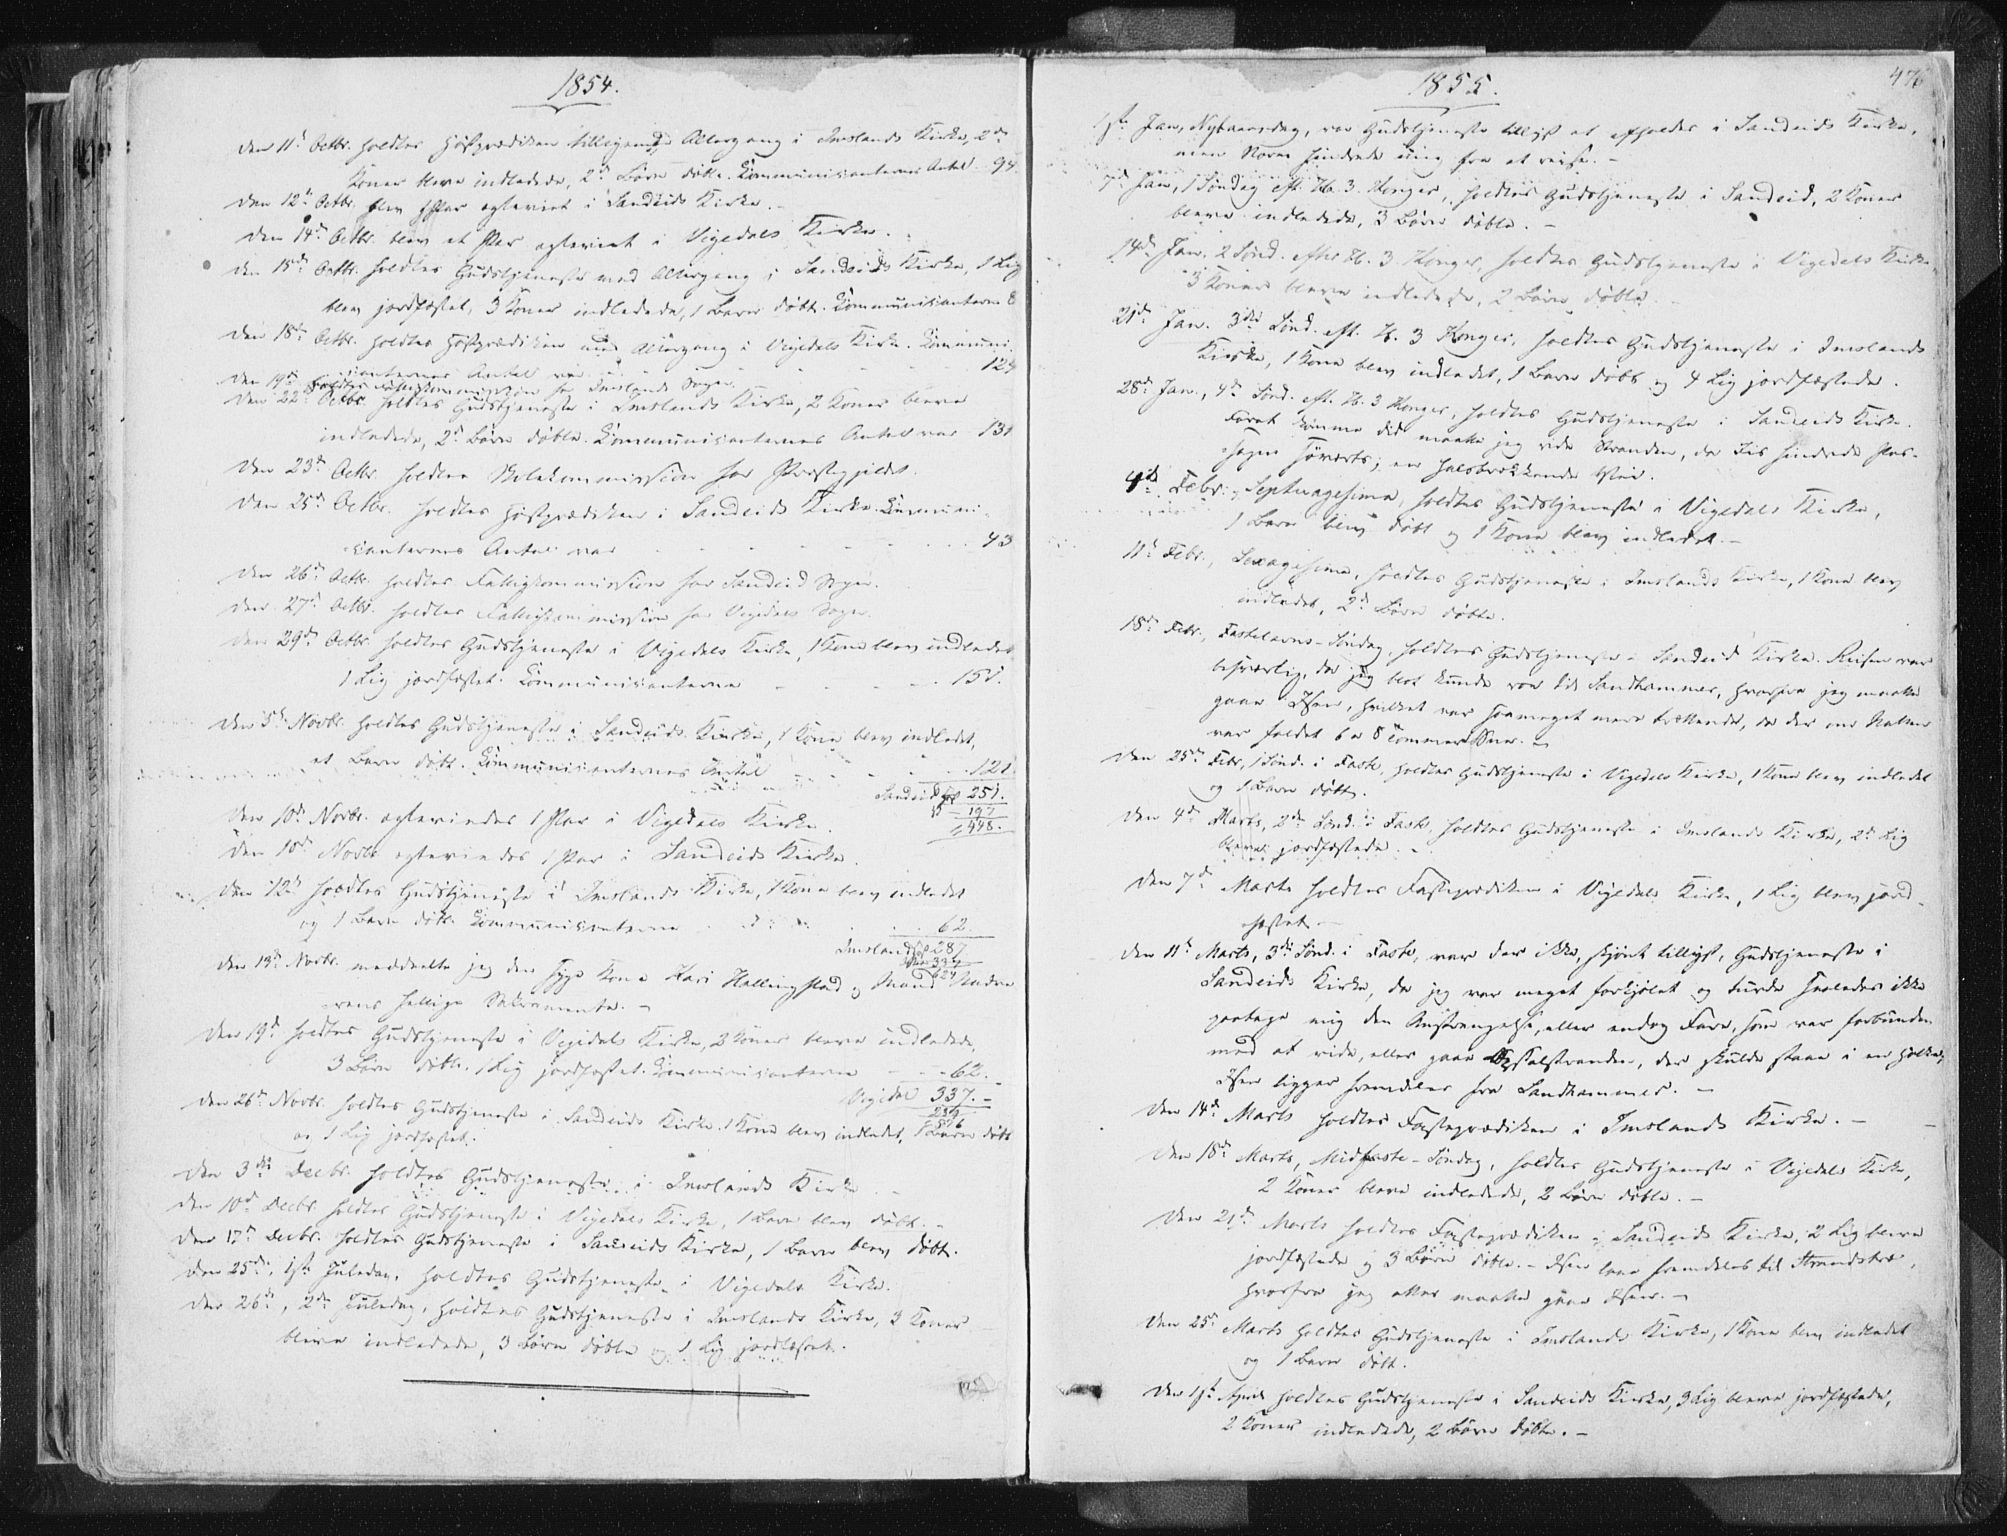 1854.
den 11t Octbr. holdtes Høstprædiken tilligemed Altergang i Imslands Kirke, 2de
Koner bleve indledede, 2de Børn døbte. Kommunikanternes Antal 94
den 12te Octbr. blev 1 Par egteviet i Sandeids Kirke.
den 14de Octbr. blev et Par egteviet i Vigedals Kirke.
den 15de Octbr. holdtes Gudstjeneste med Altergang i Sandeids Kirke, 1 Lig
blev jordfæstet, 3 Koner indledede, 1 Barn døbt. Kommunikanterne 8
den 18de Octbr. holdtes Høstprædiken med Altergang i Vigedals Kirke. Kommuni-
kanternes Antal var 124
den 19de holdtes Fattigkommission for Imslands Sogn.
den 22de Octbr. holdtes Gudstjeneste i Imslands Kirke, 2 Koner bleve
indledede, 2de Børn døbte. Kommunikanternes Antal var 131
den 23de Octbr. holdtes Skolekommission for Præstegjeldet.
den 25de Octbr. holdtes Høstprædiken i Sandeids Kirke. Kommuni-
kanternes Antal var 43
den 26de Octbr. holdtes Fattigkommission for Sandeid Sogn.
den 27de Octbr. holdtes Fattigkommission for Vigedals Sogn.
den 29de Octbr. holdtes Gudstjeneste i Vigedals Kirke, 1 Kone blev indledet
1 Lig jordfæstet. Kommunikanterne 151.
den 5te Novbr. holdtes Gudstjeneste i Sandeids Kirke, 1 Kone blev indledet,
et Barn døbt. Kommunikanternes Antal 121
Sandeid 251.
197
448.
den 10de Novbr. egteviedes 1 Par i Vigedals Kirke.
den 10de Novbr. egteviedes 1 Par i Sandeids Kirke.
den 12te holdtes Gudstjeneste i Imslands Kirke, 1 Kone blev indledet
og 1 Barn døbt. Kommunikanterne 62
Imsland 287
337
624
den 13de Novbr. meddeelte jeg den syge Kone Kari Hallingstad og Mand Nadve-
rens hellige Sakramente. –
den 19de holdtes Gudstjeneste i Vigedals Kirke, 2 Koner bleve indledede,
3 Børn døbte, 1 Lig jordfæstet. Kommunikanterne 62. –
Vigedal 337. –
den 26de Novbr. holdtes Gudstjeneste i Sandeids Kirke. 1 Kone blev indledet, 1 Barn døbt
og 1 Lig jordfæstet.
den 3de Decbr. holdtes Gudstjeneste i Imslands Kirke. –
den 10de Decbr. holdtes Gudstjeneste i Vigedals Kirke, 1 Barn blev døbt. –
den 17de Decbr. holdtes Gudstjeneste i Sandeids Kirke, 1 Barn blev døbt.
den 25de, 1ste Juledag, holdtes Gudstjeneste i Vigedals Kirke.
den 26de, 2de Juledag, holdtes Gudstjeneste i Imslands Kirke, 3 Koner
bleve indledede, 3 Børn døbte og 1 Lig jordfæstet.
1855.
476
1ste Jan, Nytaarsdag, var Gudstjeneste tillyst at afholdes i Sandeids Kirke,
men Storm hindrede mig fra at reise. –
7de Jan, 1 Søndag eft. H. 3. Konger, holdtes Gudstjeneste i Sandeid, 2 Koner
bleve indledede, 3 Børn døbte. –
14de Jan. 2 Sønd. efter H. 3 Konger, holdtes Gudstjeneste i Vigedals Kirke
3 Koner bleve indledede, 2 Børn døbte. –
21de Jan. 3die Sønd. eft. H. 3 Konger, holdtes Gudstjeneste i Imslands
Kirke, 1 Kone blev indledet, 1 Barn døbt og 4 Lig jordfæstede.
28de Jan., 4de Sønd. eft. H. 3 Konger, holdtes Gudstjeneste i Sandeids Kirke.
Forat komme did maatte jeg ride Stranden, da Iis hindrede Pas-
sagen Søværts; en halsbrækkende Vei.
4de Febr., Septuagesima, holdtes Gudstjeneste i Vigedals Kirke,
1 Barn blev døbt og 1 Kone blev indledet. –
11te Febr., Sexagesima, holdtes Gudstjeneste i Imslands Kirke, 1 Kone blev
indledet, 2de Børn døbte.
18de Febr., Fastelavns-Søndag, holdtes Gudstjeneste i Sandeid Kirke. Reisen var
besværlig, da jeg blot kunde roe til Sandhammer, hvorfra jeg maatte
gaae Isen, hvilket var saameget mere trættende, da der om Natten
var faldet 6 a 8 Tommer Snee. –
den 25de Febr, 1 Sønd. i Faste, holdtes Gudstjeneste i Vigedals Kirke, 1 Kone blev indledet
og 1 Barn døbt.
den 4de Marts, 2de Sønd. i Faste, holdtes Gudstjeneste i Imslands Kirke, 2de Lig
bleve jordfæstede.
den 7de Marts holdtes Fasteprædiken i Vigedals Kirke, 1 Lig blev jord-
fæstet. –
den 11te Marts, 3die Sønd. i Faste, var der ikke, skjønt tillyst, Gudstjeneste i
Sandeids Kirke, da jeg var meget forkjølet og turde saaledes ikke
paatage mig den Anstrengelse, eller endog Fare, som var forbunden
med at ride, eller gaae Stranden, der skulde staae i en Holke;
Isen ligger fremdeles fra Sandhammer. –
den 14de Marts holdtes Fasteprædiken i Imslands Kirke. –
den 18de Marts, Midfaste-Søndag, holdtes Gudstjeneste i Vigedals Kirke,
2 Koner bleve indledede, 2 Børn døbte. –
den 21de Marts holdtes Fasteprædiken i Sandeids Kirke, 2 Lig bleve
jordfæstede og 3 Børn døbte. – Isen laae fremdeles til
hvorfra jeg atter maatte gaae Isen. –
den 25de Marts holdtes Gudstjeneste i Imslands Kirke, 1 Kone blev indledet
og 1 Barn døbt.
den 1ste April holdtes Gudstjeneste i Sandeids Kirke, 3 Lig bleve jordfæstede,
2 Koner indledede, 2 Børn døbte. –